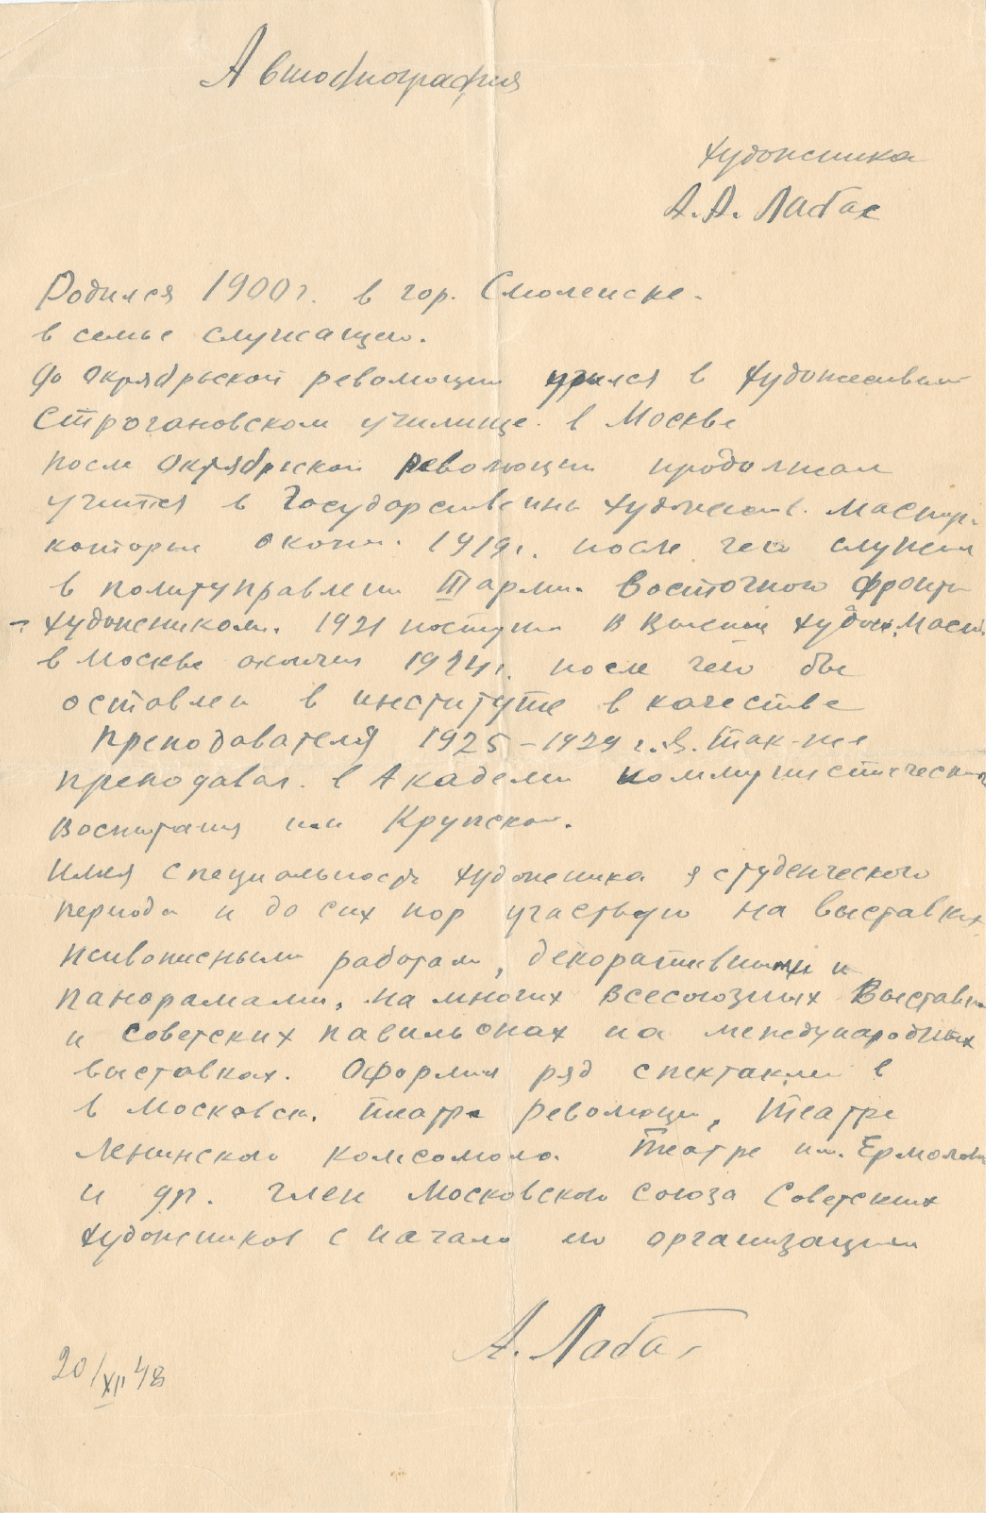 Автобиография
художника
А. А. Лабас
Родился 1900 г. в гор. Смоленске.
в семье служащего.
до Октябрьской революции учился в художествен
Строгановском училище. в Москве
после Октябрьской революции продолжал
учится в Государственны художеств. мастер.
которые окончи. 1919 г. после чего служил
в политуправлени III арми. Восточного фронта
художником. 1921 поступил в Высший худож. маст.
в Москве окончил 1924 г. после чего был
оставлен в институте в качестве
преподавателя 1925 – 1929 г. Так-же
преподавал. в Академии коммунистическ
Воспитания имени Крупской.
Имея специальность художника я студенческого
периода и до сих пор участвую на выставках
живописными работами, декоративными и
панорамами, на многих Всесоюзных Выставк
и советских павильонах на международных
выставках. Оформил ряд спектаклей в
в Московск. театре революци, Театре
Ленинского комсомола. Театре им. Ермолова
и др. член московского союза Советских
художников с начала его организации
А. Лабас
20/XII 48